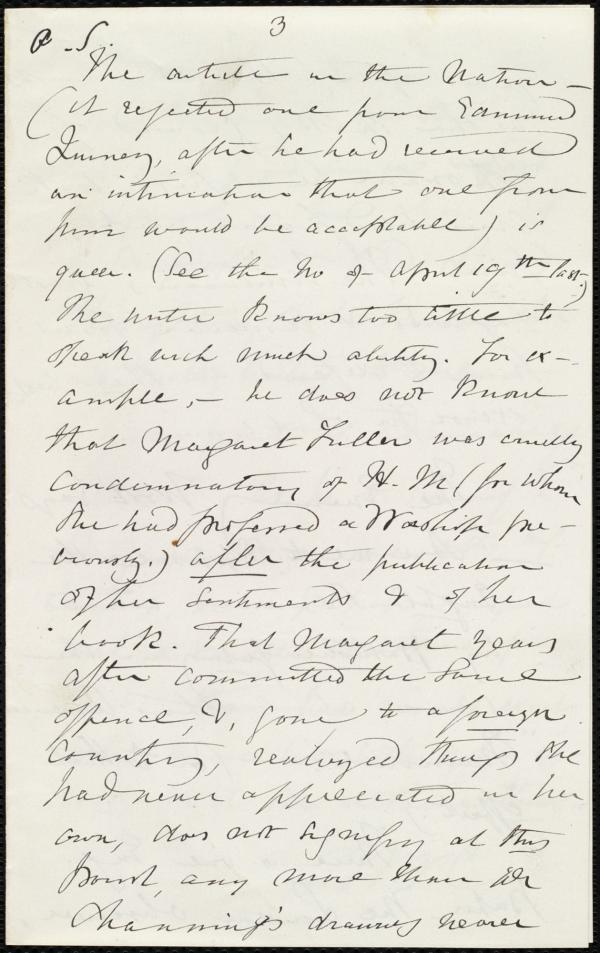 3
P.S.
The article in the Nation —
(it rejected one from Edmund
Quincy, after he had received
an intimation that one from
him would be acceptable) is
queer. (See the No of April 19th last.)
The writer knows too little to
speak with much ability. For ex-
ample, — he does not know
that Margaret Fuller was cruelly
condemnatory of H. M (for whom
she had professed a Worship pre-
viously.) after the publication
of her sentiments & of her
book. That Margaret years
after committed the same
offence, &, gone to a foreign
country, realized things she
had never appreciated in her
own, does not signify at this
point, any more than Dr
Channing's drawing nearer